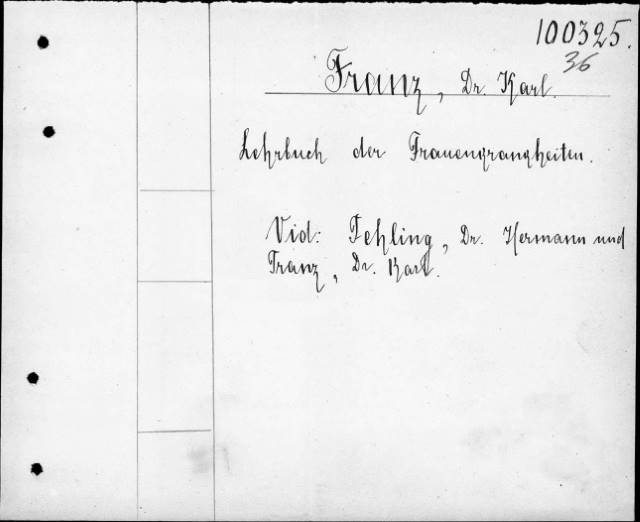 100325.
36
Franz, Dr. Karl.
Lehrbuch der Frauengrangheiten.
Vid: Fehling, Dr. Hermann und
Franz, Dr. Karl.